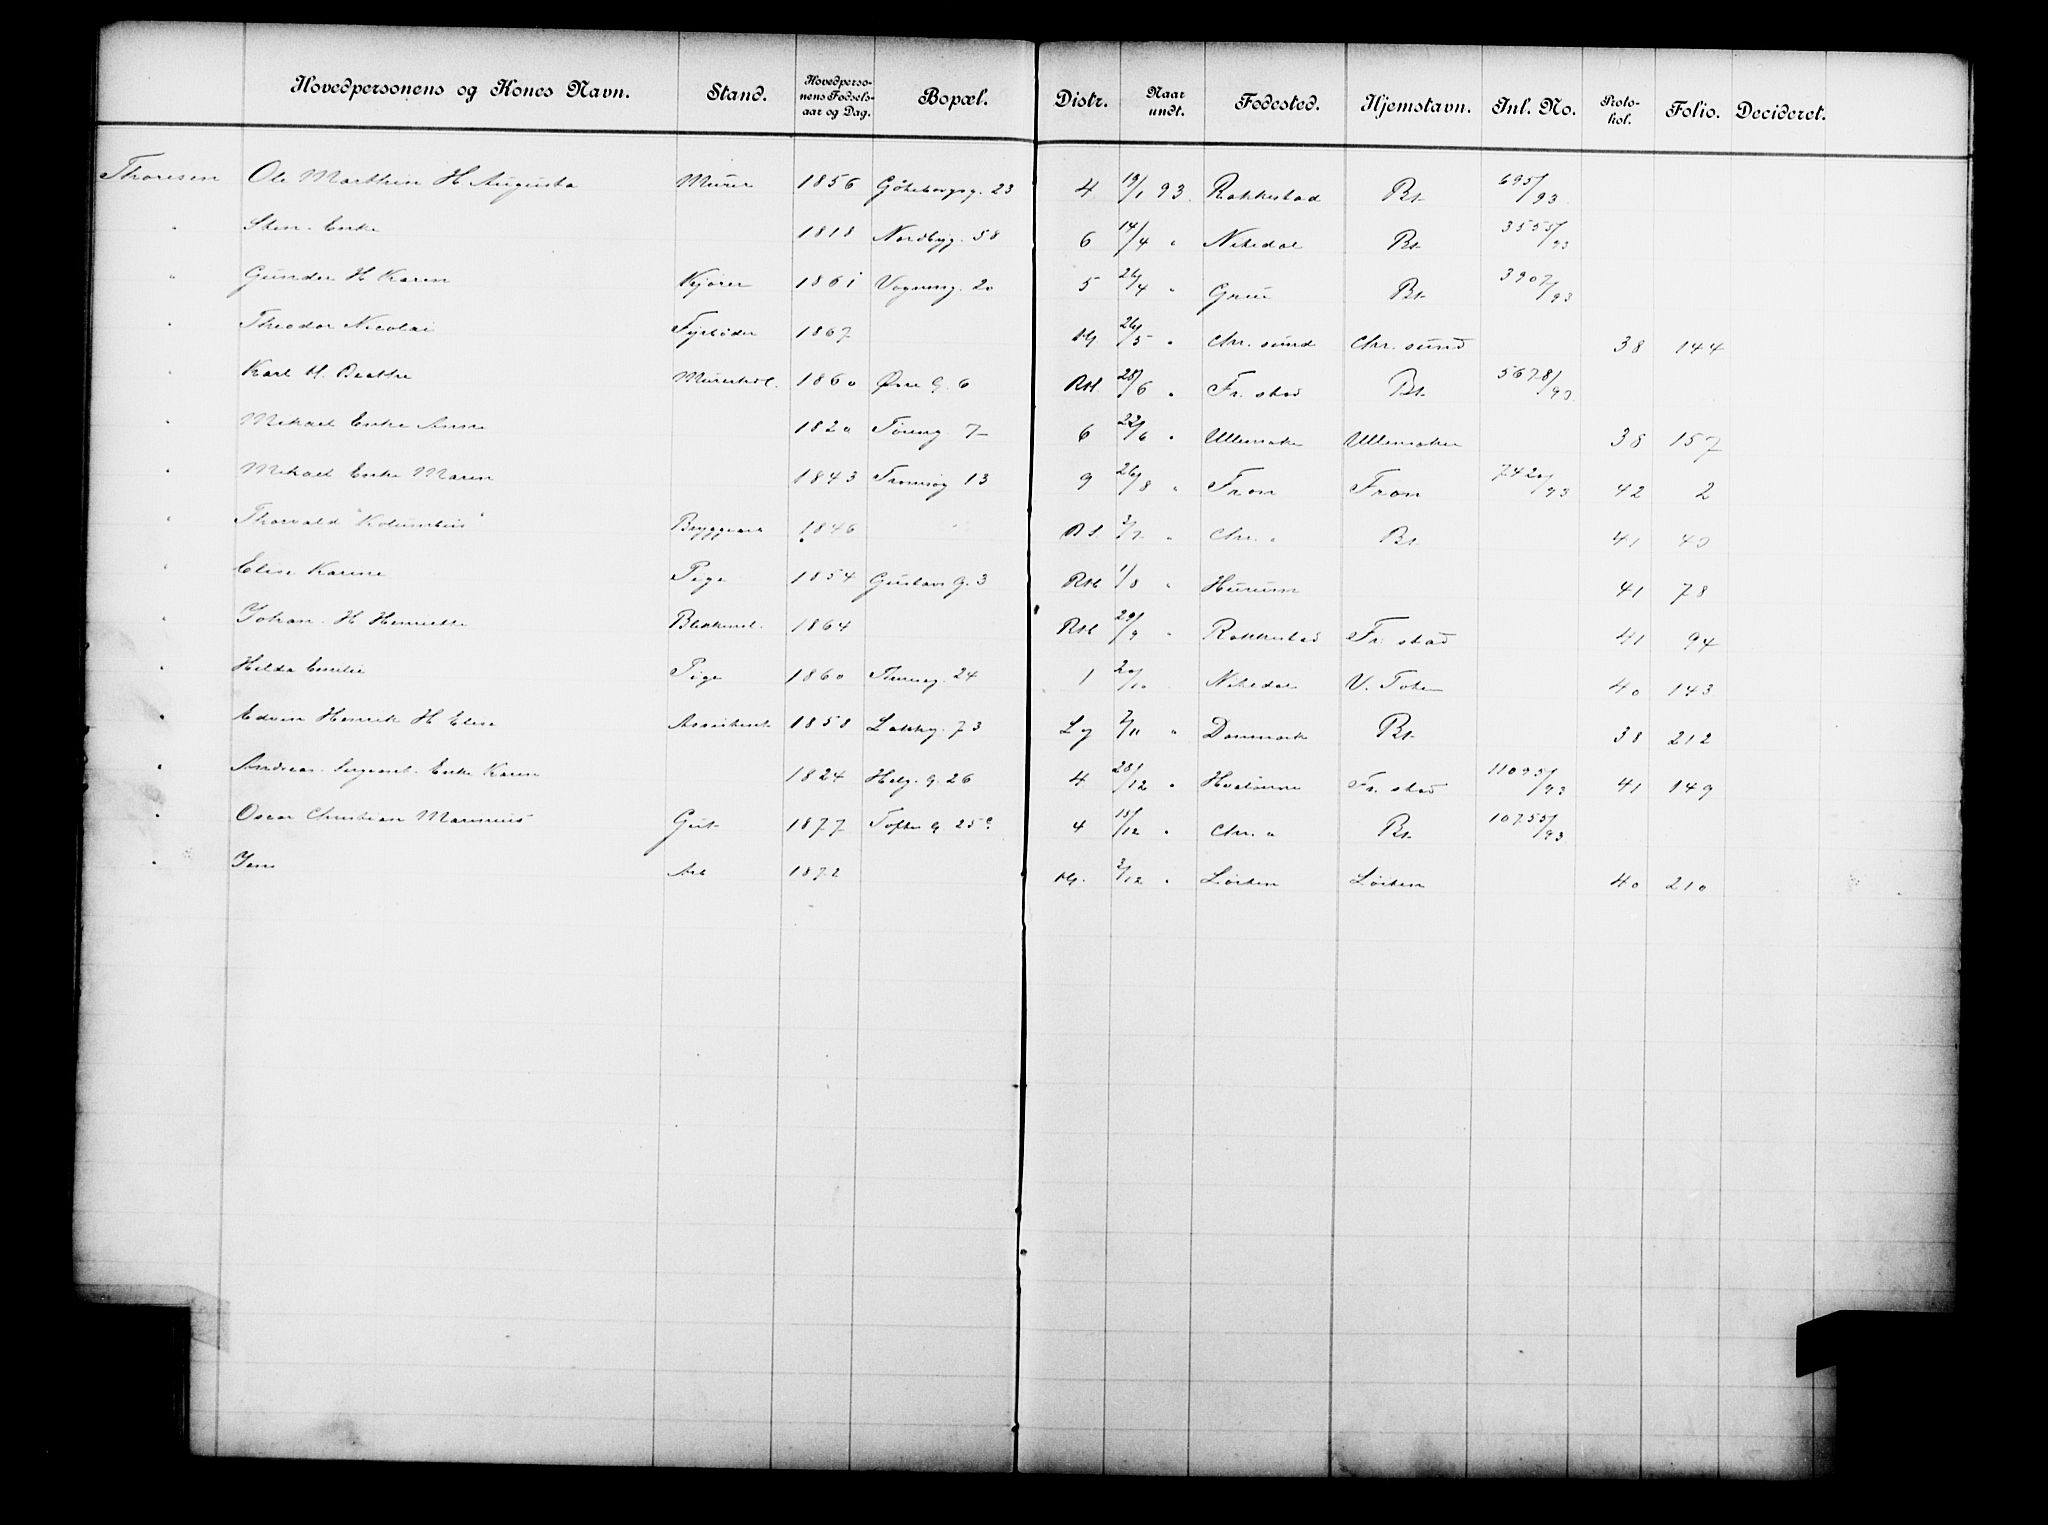 Hovedpersonens og Kones Navn. Stand. Hovedpersonens Fødsels-aar og Dag. Bopæl. Distr. Naar undt. Fødested. Hjemstavn. Inl. No. Protokol. Folio. Decideret.
Thoresen Ole Marthin H Augusta Murer 1856 Göteborgsg. 23 4 19/1 93 Rakkestad Bt 695/93
" Sten. Enke 1818 Nordbyg. 58 6 14/4 " Nitedal Bt 3555/93
" Gunder H Karen Kjører 1861 Vogneng. 20 5 26/4 " Grue Bt 3907/93
" Theodor Nicolai Fyrbøder 1867 26/5 " Chr. sund Chr. sund 38 144
" Karl H. Beathe 1860 Øvre G. 6 Rst. 28/6 " Fr. stad Bt 5678/93
" Mikael Enke Anne 1820 Tøieng. 7 6 22/6 " Ullensaker Ullensaker 38 157
" Mikael Enke Maren 1843 Tromsøg 13 9 26/8 " Fron Fron 7420/93 42 2
" Thorvald "Kolumbus" Bryggearb 1846 2/7 " Chr. a Bt 41 40
" Elise Karine Pige 1854 Gustavs G. 3 Rst. 1/8 " Hurum 41 78
" Johan H Henriette 1864 Rst. 29/9 " Rakkestad Fr. stad 41 94
" Hilda Emilie Pige 1860 Thorneg. 24 1 20/10 Nitedal V. Toten 40 143
" Edvin Henrik H Elise Assistent 1858 Lakkeg. 73 Lg 7/11 " Danmark Bt 38 212
" Andreas. Sergeant. Enke Karen 1824 Helg. G. 26 4 28/12 " Hvaløerne Fr. stad 11095/93 41 149
" Oscar Christian Marinius Gut 1877 Tofte G 25c 4 15/12 " Chr. a Bt 10755/93
" Jens Arb 1872 2/12 " Løiten Løiten 40 210